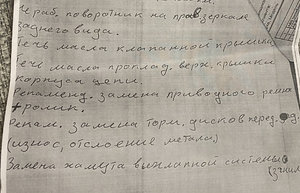 Нераб. поворотник на прав зеркале
заднего вида.
Течь масла клапанной крышки
Течь масла проклад. верх. крышки
корпуса цепи.
Рекаменд. замена приводного ремня
+ ролик.
Рекам. замена торм. дисков перед.
(износ, отслоение метала)
Замена хамута выхлапной системы